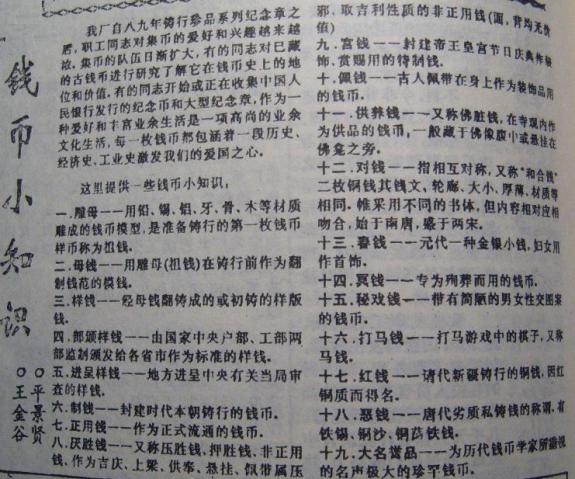 钱币小知识
○王金谷
○平景贤
我厂自八九年铸行珍品系列纪念章之
肥，职工同志对集币的爱好和兴趣越来越
浓，集币的队伍日渐扩大，有的同志对已藏
的古钱币进行研究了解它在钱币史上的地
位和价值。有的同志开始或正在收集中国人
民银行发行的纪念币和大型纪念章，作为一
种爱好和丰富业余生活是一项高尚的业余
文化生活，每一枚钱币都包涵着一段历史、
经济史、工业史激发我们的爱国之心。
这里提供一些钱币小知识：
一．雕母——用铅、锡、铝、牙、骨、木等材质
雕成的钱币模型，是准备铸行的第一枚钱币
样币称为祖钱。
二．母钱——用雕母（祖钱）在铸行前作为翻
制钱范的模钱。
三．样钱——经母钱翻铸成的或初铸的样版
钱。
四．部颁样钱——由国家中央户部、工部两
部监制颁发给各省市作为标准的样钱。
五．进呈样钱——地方进呈中央有关当局审
查的样钱。
六．制钱——封建时代本朝铸行的钱币。
七．正用钱——作为正式流通的钱币。
八．厌胜钱——又称压胜钱，押胜钱，非正用
钱、作为吉庆、上梁、供奉、悬挂、佩带属压
邪、取吉利性质的非正用钱（面，背均无价
值）
九．宫钱——封建帝王皇宫节日庆典作装
饰、赏赐用的特制钱。
十．佩钱——古人佩带在身上作为装饰品用
的钱币。
十一．供养钱——又称佛脏钱，在寺观内作
为供品的钱币，一般藏于佛像腹中或悬挂在
佛龛之旁。
十二．对钱——指相互对称，又称“和合钱”
二枚铜钱其钱文、轮廓、大小、厚薄、材质等
相同。惟采用不同的书体，但内容相对应相
吻合，始于南唐，盛于两宋。
十三．春钱——元代一种金银小钱，妇女用
作首饰。
十四．冥钱——专为殉葬而用的钱币。
十五．秘戏钱——带有简陋的男女性交图案
的钱币。
十六．打马钱——打马游戏中的棋子，又称
马钱。
十七．红钱——清代新疆铸行的铜钱，因红
铜质而得名。
十八．恶钱——唐代劣质私铸钱的称谓，有
铁锡、铜沙、铜荡铁钱。
十九．大名誉品——为历代钱币学家所重视
的名声极大的珍罕钱币。